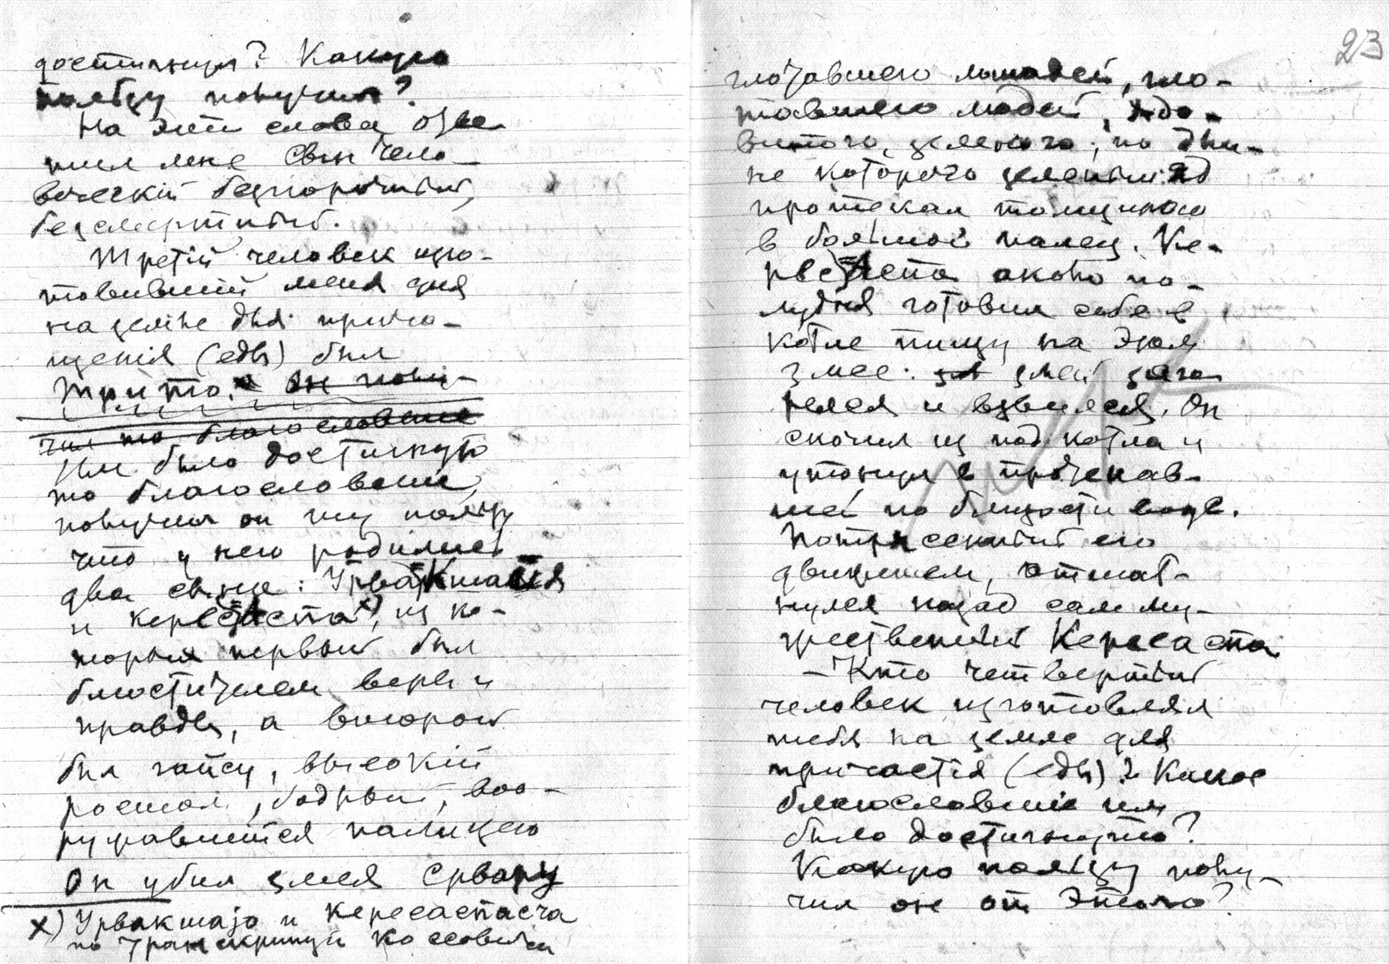 достигнул? Какую
пользу получил?
На эти слова отве
тил мне сын чело-
веческiй безпорочный,
безсмертный.
Третiй человек изго-
товившiй меня для
на земле для прича-
щенiя (еды) был
Трито. Он полу-
чил то благословение
Им было достигнуто
то благословение,
получил он ту пользу
что у него родились
два сына: Урвакшайя
и Кересаспа x), из ко-
торых первый был
блюстителем веры и
правды, а второй
был гайсу, высокiй
ростом, бодрый, воо-
ружавшийся палицею
Он убил змея Срвару
x) Урвакшаjо и Кересаспасча
по транскрипцiи Коссовича
23
глотавшего лошадей, гло-
тавшего людей, ядо-
витого, зеленого, по спи-
не которого зеленый яд
протекал толщиною
в большой палец. Ке-
ресаспа около по-
лудня готовил себе в
котле пищу на этом
змее. змей заго-
релся и взвился. Он
скочил из под котла и
утонул в протекав-
шей по близости воде.
Потрясенный его
движением, отшат-
нулся назад сам му-
жественный Кересаспа
— Кто четвертый
человек изготовлял
тебя на земле для
причастiя (еды)? Какое
благословение им
было достигнуто?
Какую пользу полу-
чил он от этого?